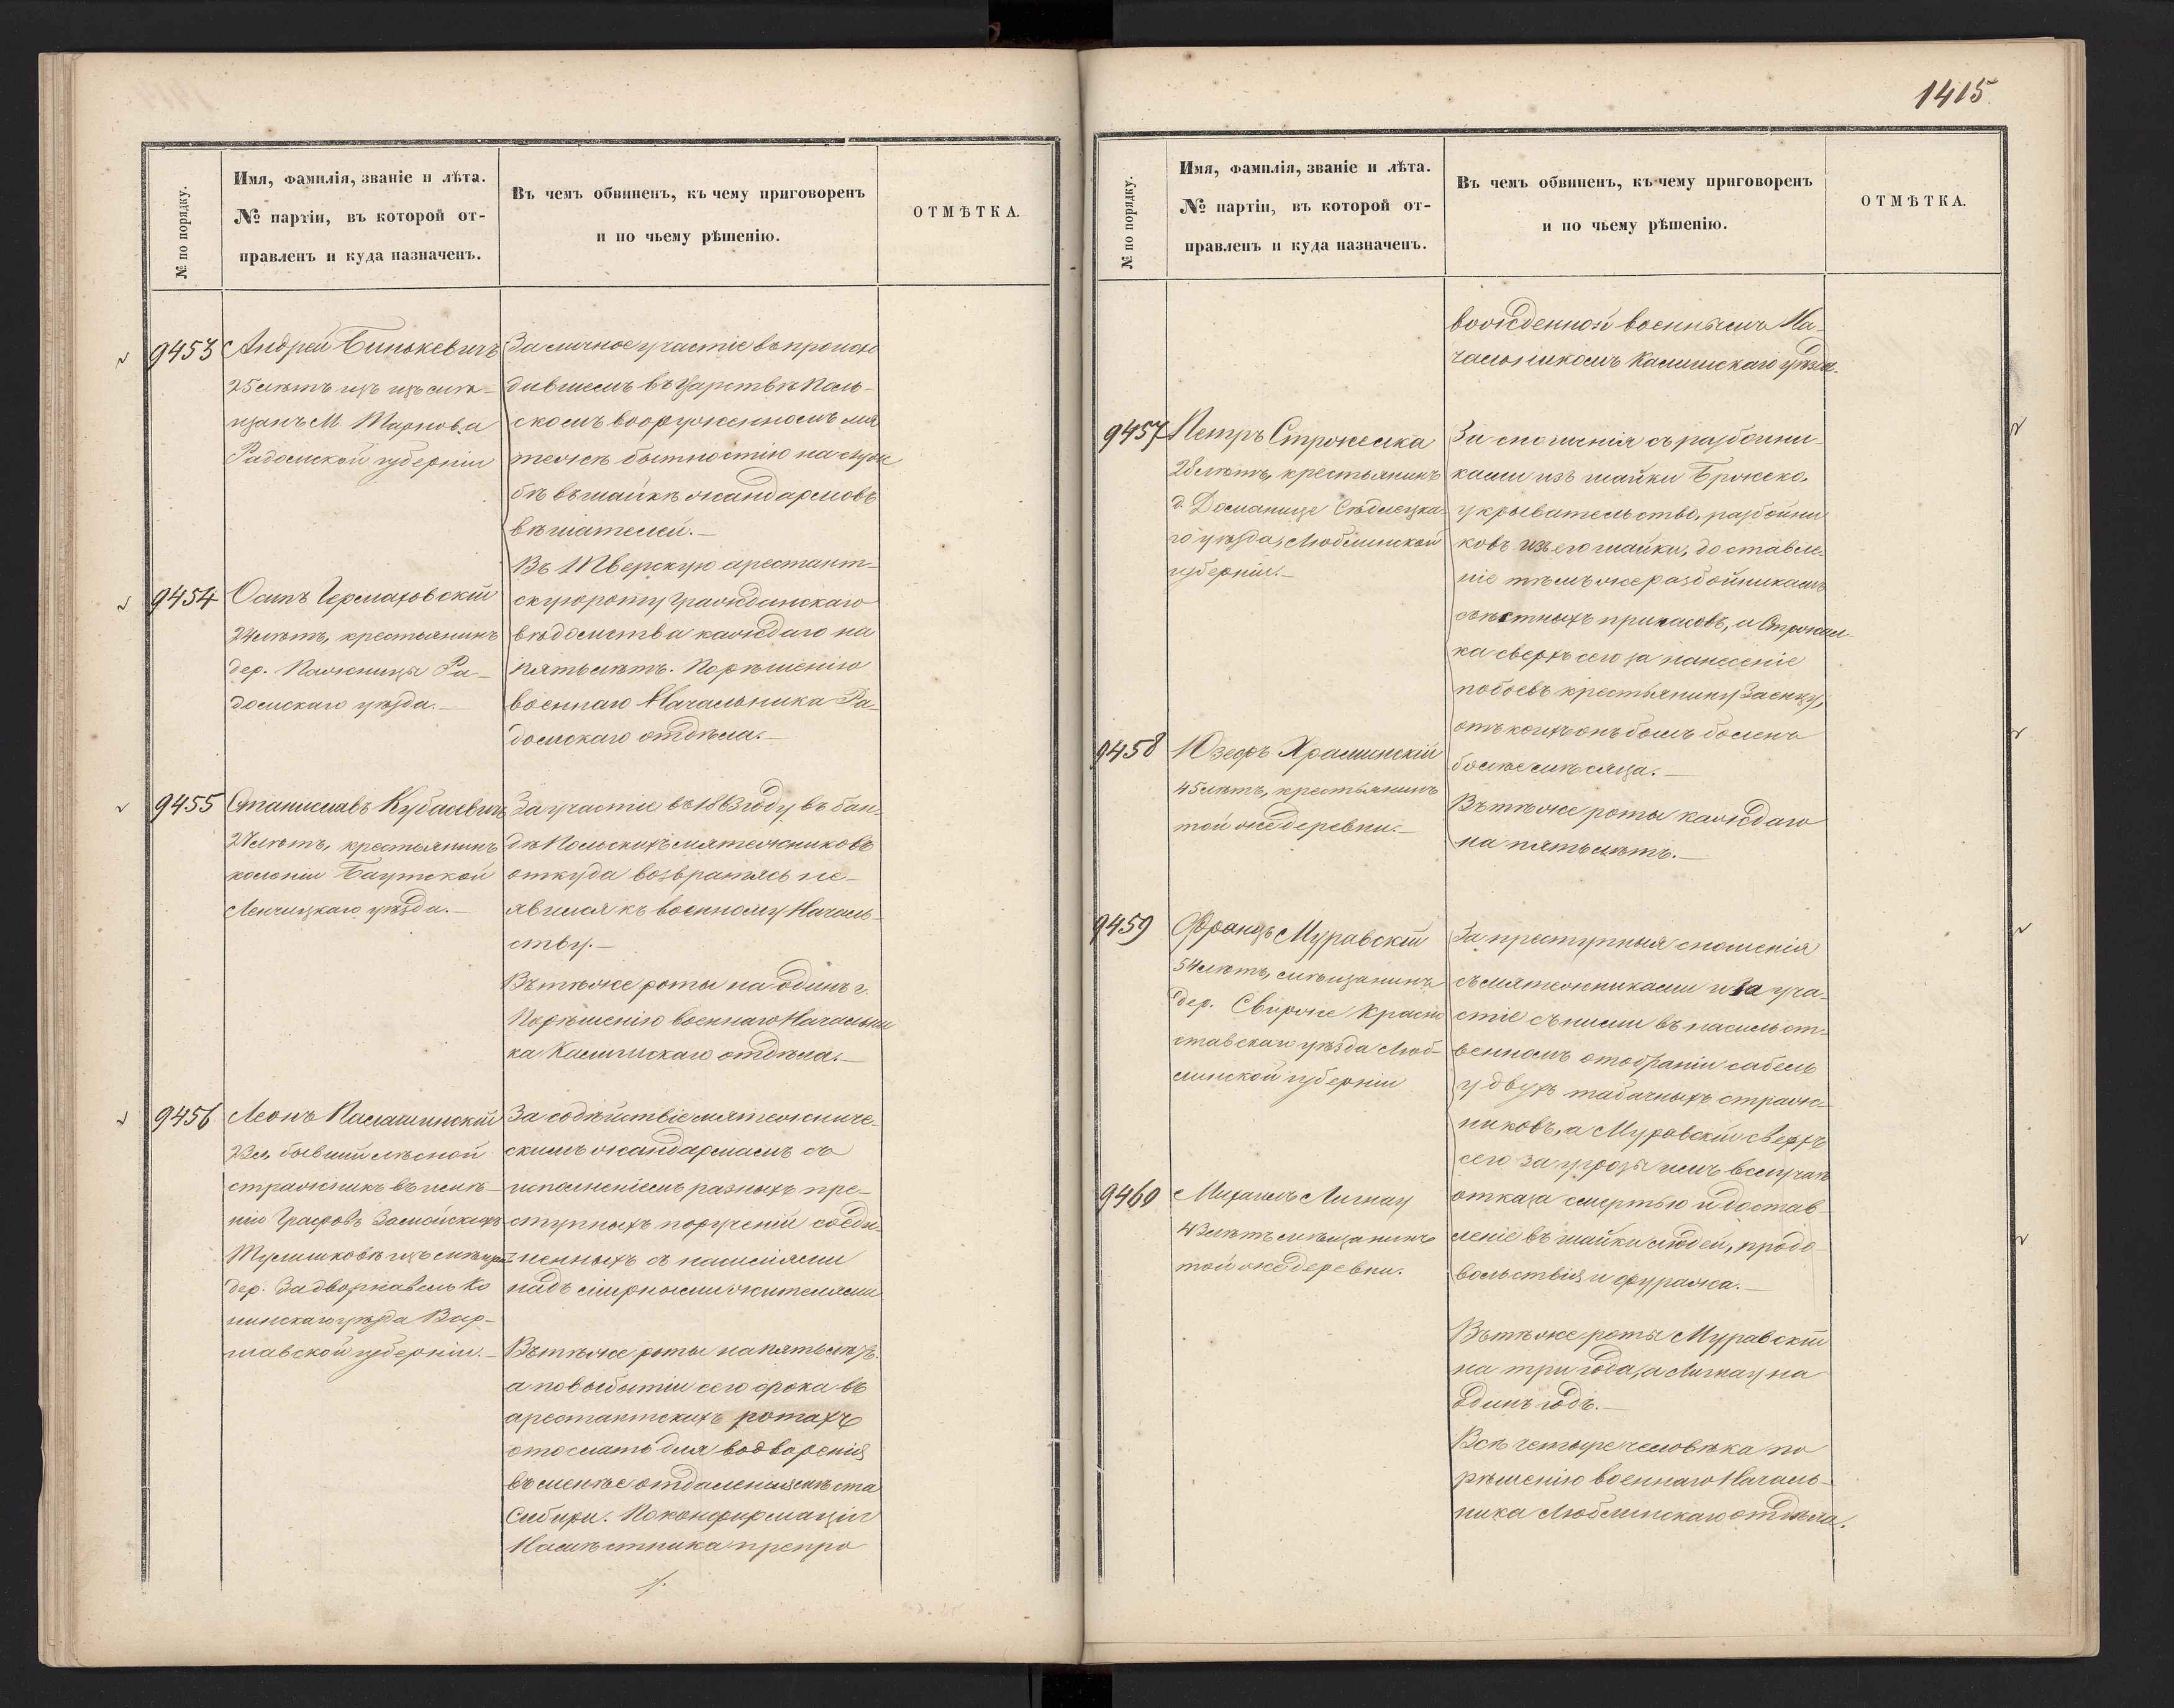 1415.
№ по порядку.
Имя, фамилія, званіе и лѣта.
№ партіи, въ которой от-
правленъ и куда назначенъ.
Въ чемъ обвиненъ, къ чему приговоренъ
и по чьему рѣшенію.
ОТМѢТКА.
9453
Андрей Бинькевичъ
25 лѣтъ изъ мѣ-
щанъ М. Тарнова
Радомской губерніи
За личное участіе въ происхо
дившемъ въ Царствѣ Поль-
скомъ вооруженномъ мя
тежѣ бытностію на службѣ
бѣ въ шайкѣ жандармовъ
вѣшателей.—
Въ Тверскую арестант-
9454
Осипъ Чермаховскій
24 лѣтъ, крестьянинъ
дер. Ра-
домскаго уѣзда.—
скую роту Гражданскаго
вѣдомства каждаго на
пять лѣтъ. По рѣшенію
военнаго Начальника Ра-
домскаго отдѣла.—
9455
Станиславъ Кубасевичъ
27 лѣтъ, крестьянинъ
колоніи
Ленчицкаго уѣзда.—
За участіе въ 1863 году въ бан-
дѣ Польскихъ мятежниковъ
откуда возвратясь не-
явился къ военному Началь-
ству.—
Въ тѣже роты на одинъ г.
По рѣшенію военнаго Начальни
ка Калишскаго отдѣла.—
9456
Леонъ
23 л. бывшій лѣсной
стражникъ въ имѣ-
ніи Графовъ Замойскихъ
изъ мѣщанъ
дер. Ко
нинскаго уѣзда Вар-
шавской губерніи.—
За содѣйствіе мятежниче-
скимъ жандармамъ съ
исполненіемъ разныхъ пре-
ступныхъ порученій соеди-
ненныхъ съ насиліями
надъ мирными жителями
Въ тѣже роты на пять лѣтъ.
а по выбытіи сего срока въ
арестантскихъ ротахъ
отослать для водворенія
въ менѣе отдаленныя мѣста
Сибири. По конфирмаціи
Намѣстника препро
№ по порядку.
Имя, фамилія, званіе и лѣта.
№ партіи, въ которой от-
правленъ и куда назначенъ.
Въ чемъ обвиненъ, къ чему приговоренъ
и по чьему рѣшенію.
ОТМѢТКА.
вожденной военнымъ На-
чальникомъ Калишскаго уѣзда.
9457
Петръ Строжемка
28 лѣтъ, крестьянинъ
д. Доманице Сѣдлецка
го уѣзда, Люблинской
губерніи.—
За сношенія съ разбойни-
ками изъ шайки Бржеско,
укрывательство, разбойни
ковъ изъ его шайки, доставле-
ніе тѣмъ же разбойникамъ
съѣстныхъ припасовъ, а Строжем-
ка сверхъ сего за нанесеніе
побоевъ крестьянину Заенцу,
отъ коихъ онъ былъ боленъ
болѣе мѣсяца.—
9458
Юзефъ Храминскій
45 лѣтъ, крестьянинъ
той же деревни.—
Въ тѣже роты каждаго
на пять лѣтъ.—
9459
Францъ Муравскій
54 лѣтъ, мѣщанинъ
дер. Свирже Красно
ставскаго уѣзда Люб-
линской губерніи
За преступныя сношенія
съ мятежниками и за уча-
стіе съ ними въ насильст-
венномъ отобраніи сабель
у двухъ табачныхъ страж-
никовъ, а Муровскій сверхъ
сего за угрозы имъ въ случаѣ
отказа смертью и достав
леніе въ шайки людей, продо-
вольствія и фуража.—
9460
Михаилъ Лигнау
43 лѣтъ мѣщанинъ
той же деревни.
Въ тѣже роты Муравскій
на три года, а Лигнау на
одинъ годъ.—
Всѣ четыре человѣка по
рѣшенію военнаго Началь-
ника Люблинскаго отдѣла.